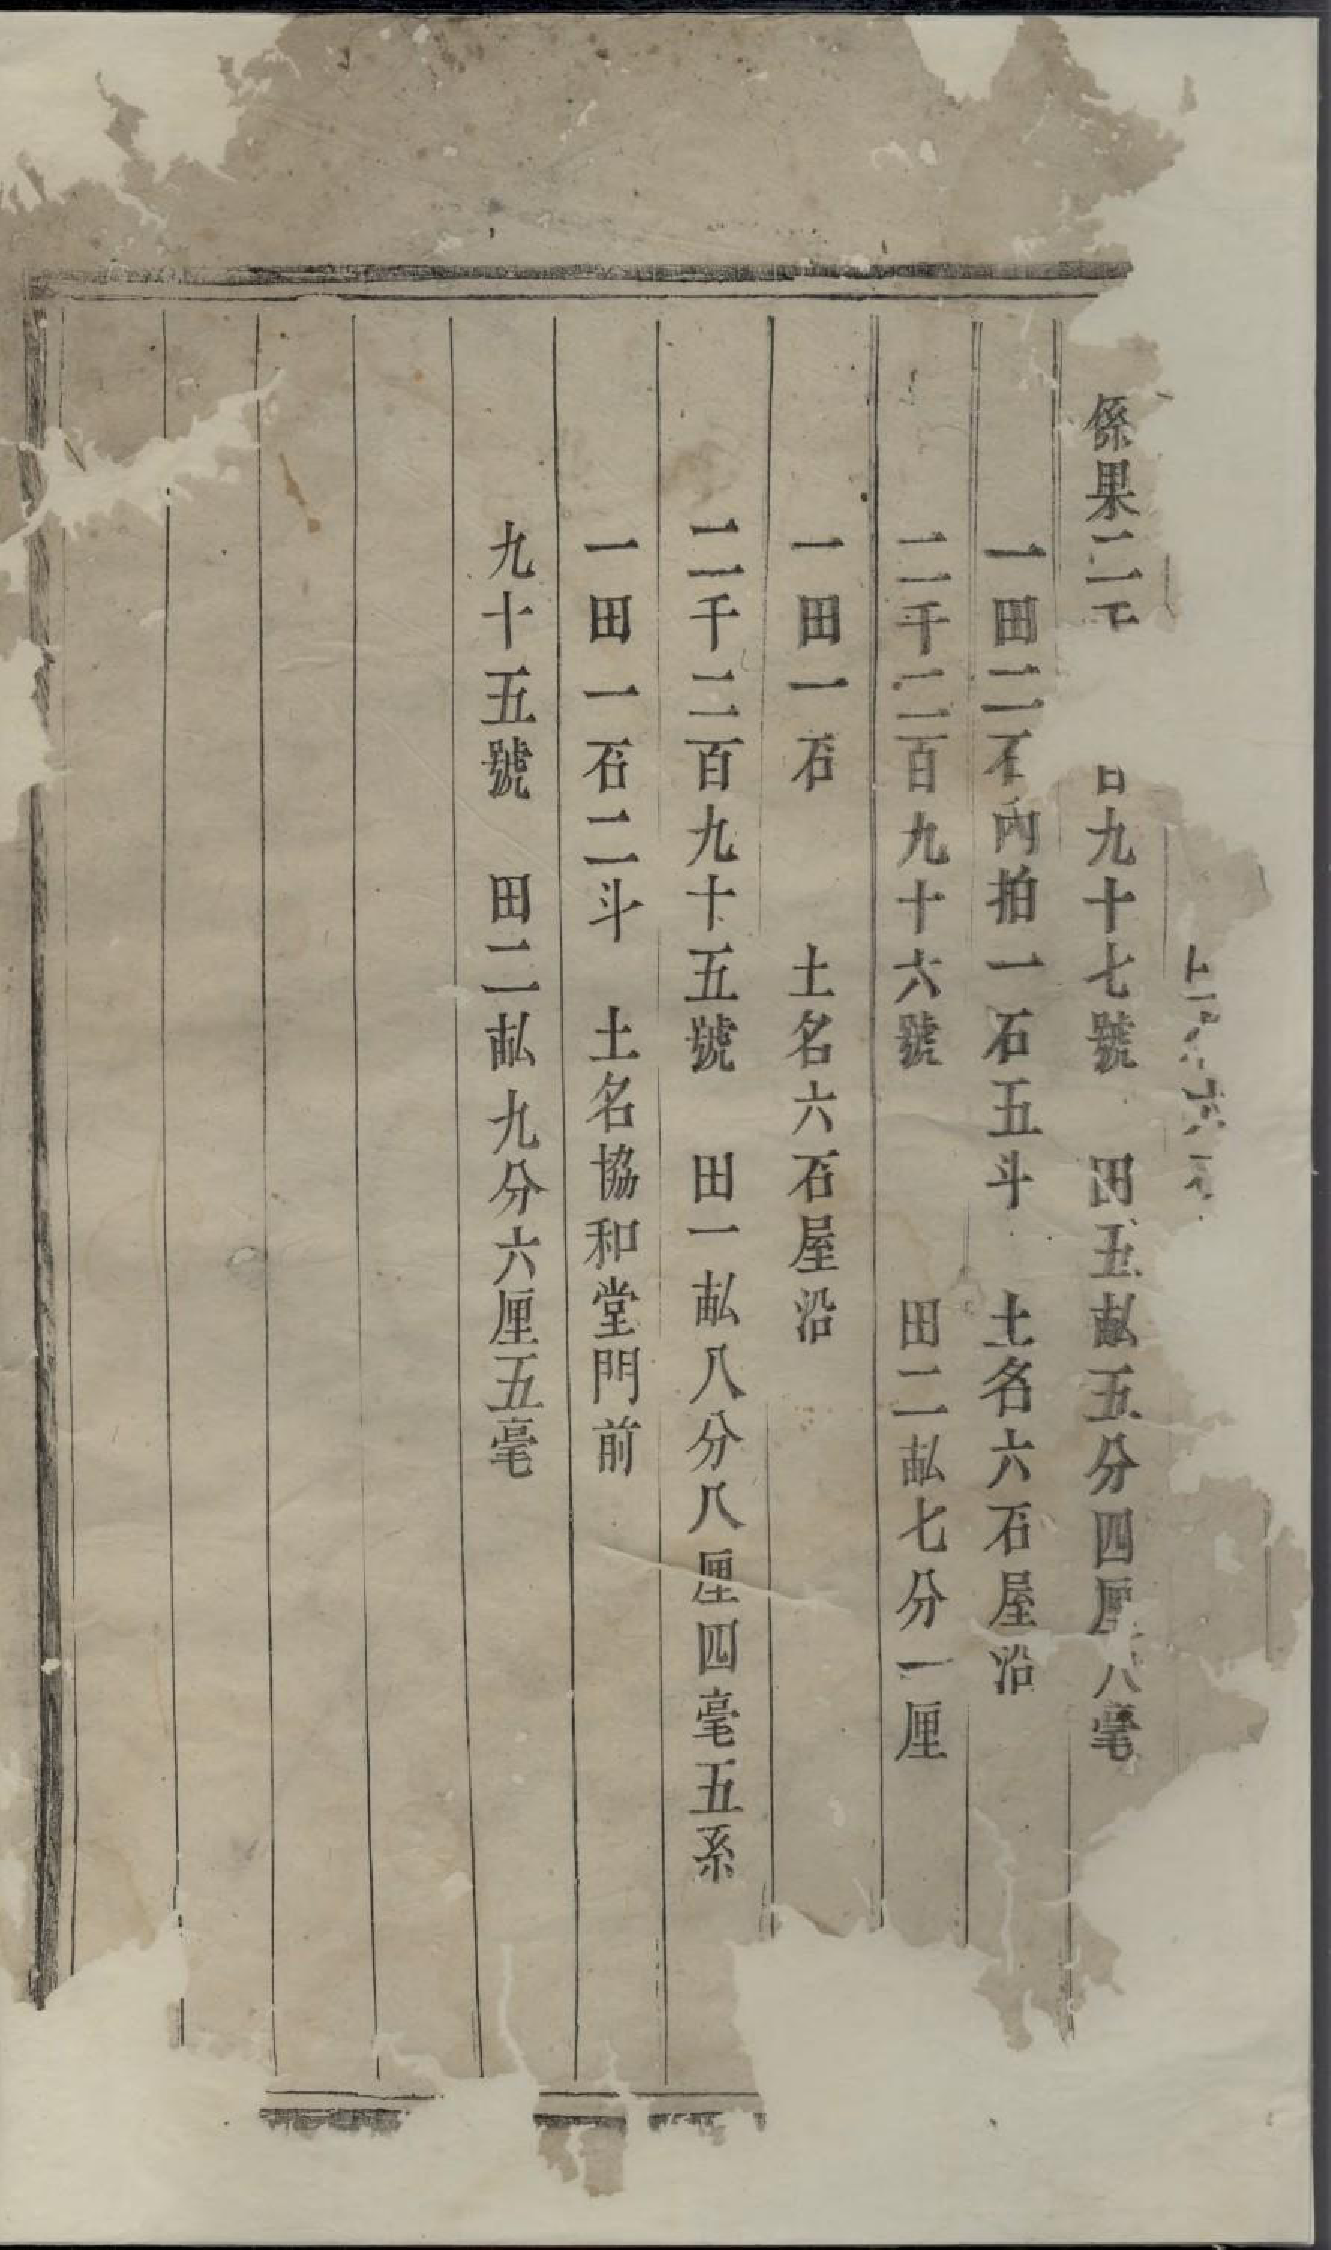 係果二千 百九十七號 田五畝五分四厘八毫
一田二石內拍一石五斗 土名六石屋沿
二千二百九十六號 田二畝七分一厘
一田一石 土名六石屋沿
二千二百九十五號 田一畝八分八厘四毫五系
一田一石二斗 土名協和堂門前
九十五號 田二畝九分六厘五毫